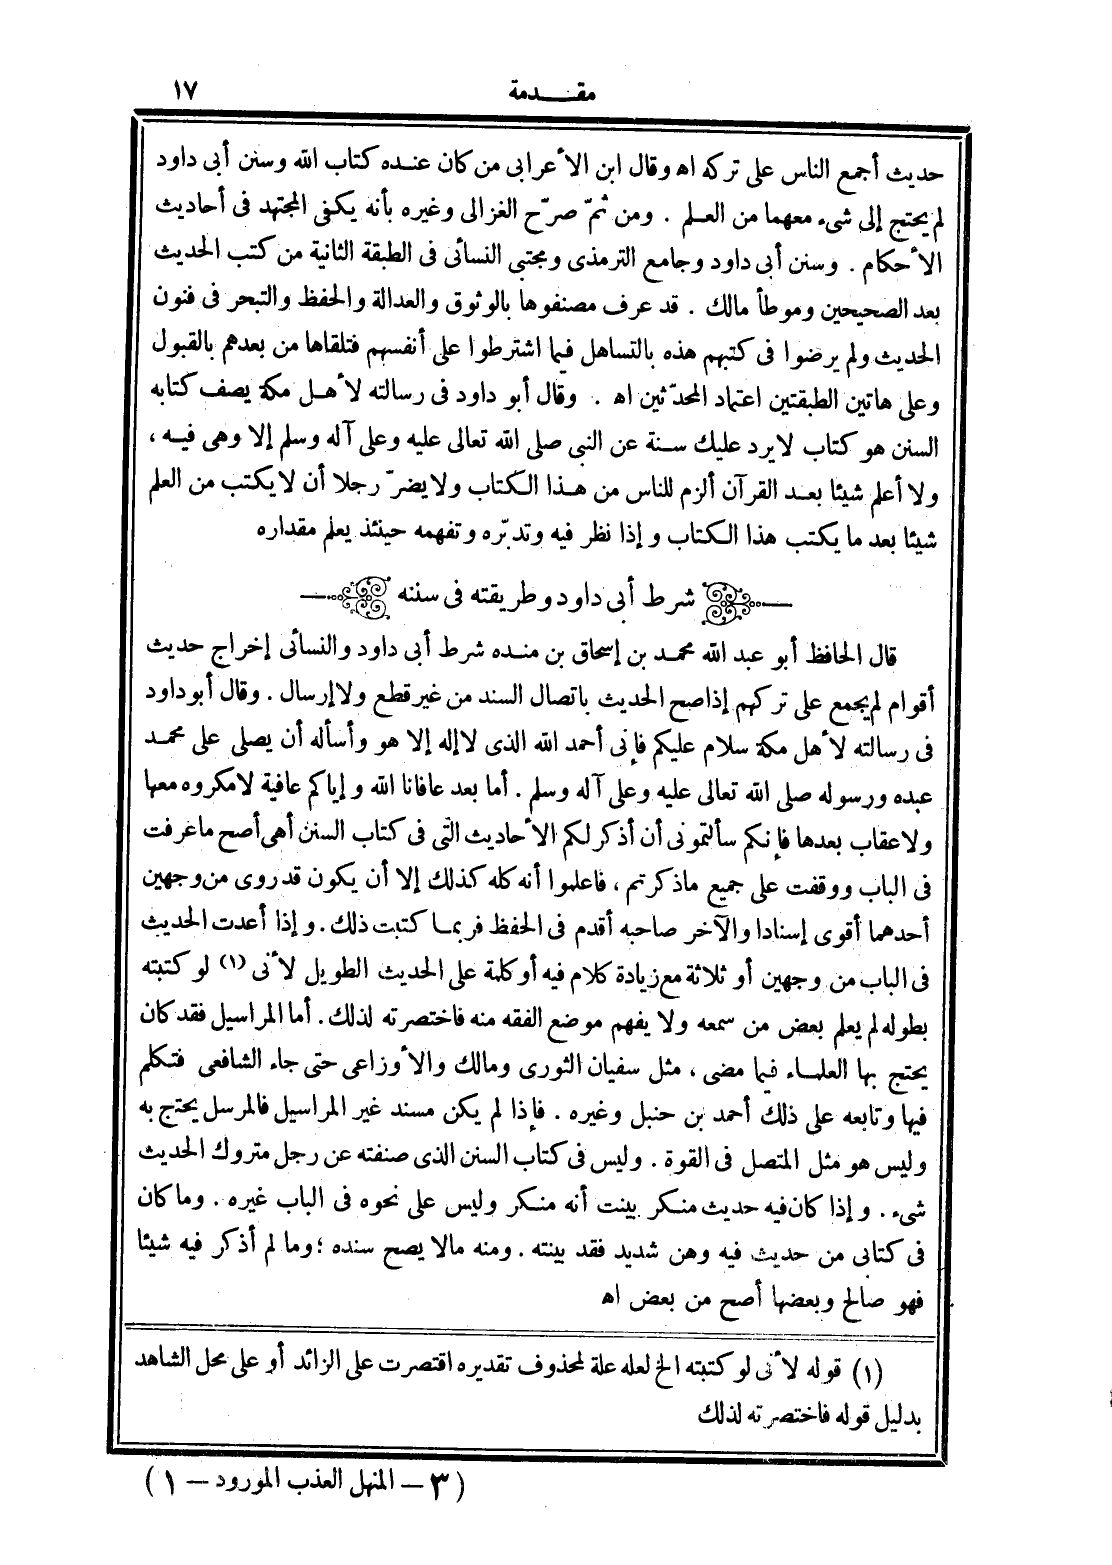 مقدمة
١٧
حديث أجمع الناس على تركه اه وقال ابن الأعرابى من كان عنده كتاب الله وسنن أبى داود
لم يحتج إلى شىء معهما من العلم . ومن ثمّ صرّح الغزالى وغيره بأنه يكفى المجتهد فى أحاديث
الأحكام . وسنن أبى داود وجامع الترمذى ومجتبى النسائى فى الطبقة الثانية من كتب الحديث
بعد الصحيحين وموطأ مالك . قد عرف مصنفوها بالوثوق والعدالة والحفظ والتبحر فى فنون
الحديث ولم يرضوا فى كتبهم هذه بالتساهل فيما اشترطوا على أنفسهم فتلقاها من بعدهم بالقبول
وعلى هاتين الطبقتين اعتماد المحدّثين اه . وقال أبو داود فى رسالته لأهل مكة يصف كتابه
السنن هو كتاب لا يرد عليك سنة عن النبى صلى الله تعالى عليه وعلى آله وسلم إلا وهى فيه ،
ولا أعلم شيئا بعد القرآن ألزم للناس من هذا الكتاب ولا يضرّ رجلا أن لا يكتب من العلم
شيئا بعد ما يكتب هذا الكتاب وإذا نظر فيه وتدبّره وتفهمه حينئذ يعلم مقداره
شرط أبى داود وطريقته فى سننه
قال الحافظ أبو عبد الله محمد بن إسحاق بن منده شرط أبى داود والنسائى إخراج حديث
أقوام لم يجمع على تركهم إذا صح الحديث باتصال السند من غير قطع ولا إرسال . وقال أبو داود
فى رسالته لأهل مكة سلام عليكم فإنى أحمد الله الذى لا إله إلا هو وأسأله أن يصلى على محمد
عبده ورسوله صلى الله تعالى عليه وعلى آله وسلم . أما بعد عافانا الله وإياكم عافية لا مكروه معها
ولا عقاب بعدها فإنكم سألتمونى أن أذكر لكم الأحاديث التى فى كتاب السنن أهى أصح ما عرفت
فى الباب ووقفت على جميع ما ذكرتم ، فاعلموا أنه كله كذلك إلا أن يكون قد روى من وجهين
أحدهما أقوى إسنادا والآخر صاحبه أقدم فى الحفظ فربما كتبت ذلك . وإذا أعدت الحديث
فى الباب من وجهين أو ثلاثة مع زيادة كلام فيه أو كلمة على الحديث الطويل لأنى (١) لو كتبته
بطوله لم يعلم بعض من سمعه ولا يفهم موضع الفقه منه فاختصرته لذلك . أما المراسيل فقد كان
يحتج بها العلماء فيما مضى ، مثل سفيان الثورى ومالك والأوزاعى حتى جاء الشافعى فتكلم
فيها وتابعه على ذلك أحمد بن حنبل وغيره . فإذا لم يكن مسند غير المراسيل فالمرسل يحتج به
وليس هو مثل المتصل فى القوة . وليس فى كتاب السنن الذى صنفته عن رجل متروك الحديث
شىء . وإذا كان فيه حديث منكر بينت أنه منكر وليس على نحوه فى الباب غيره . وما كان
فى كتابى من حديث فيه وهن شديد فقد بينته . ومنه مالا يصح سنده ؛ وما لم أذكر فيه شيئا
فهو صالح وبعضها أصح من بعض اه
(١) قوله لأنى لو كتبته الخ لعله علة لمحذوف تقديره اقتصرت على الزائد أو على محل الشاهد
بدليل قوله فاختصرته لذلك
(٣ – المنهل العذب المورود – ١)